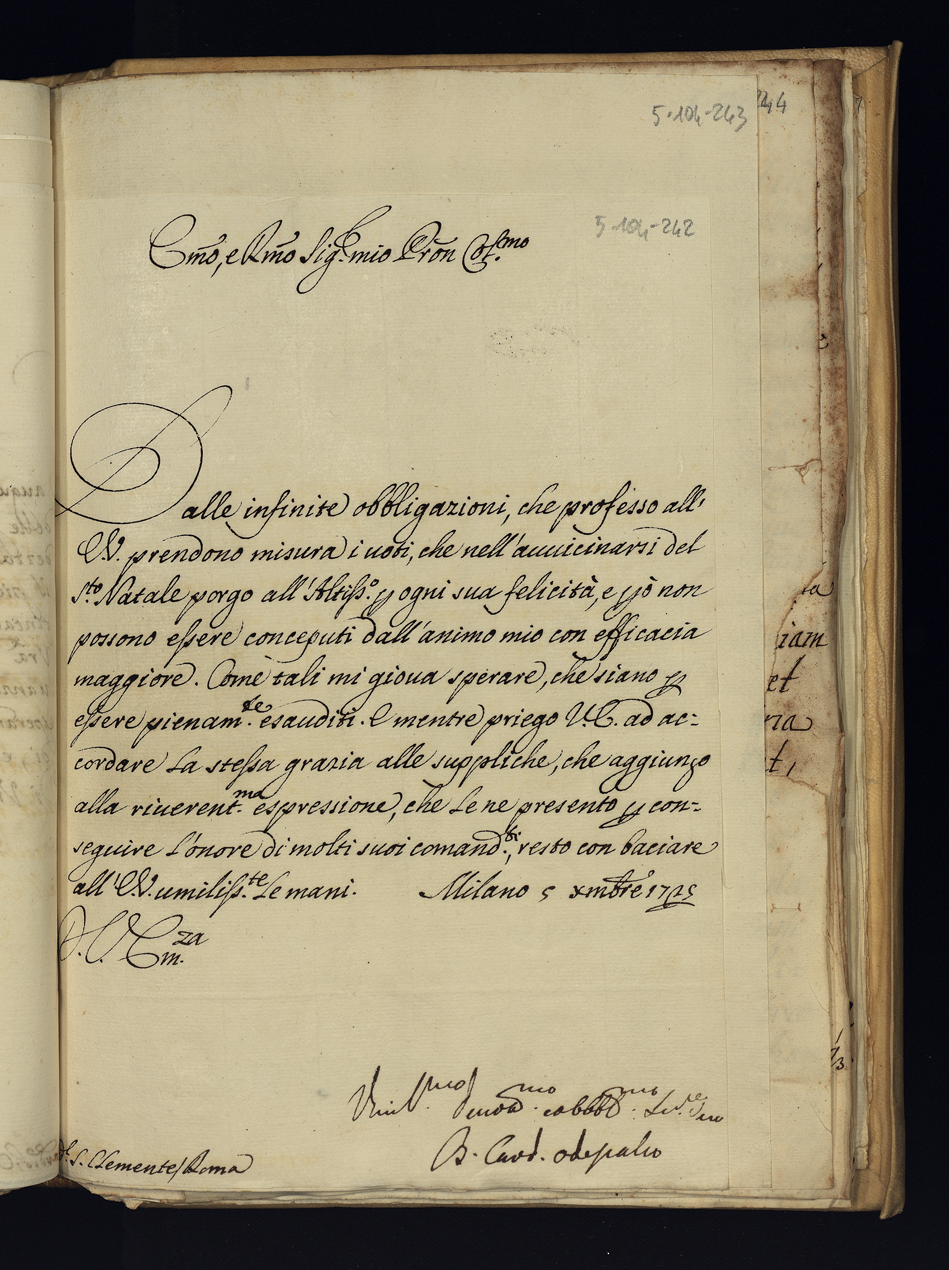 5-104-243
244
5-104-242
Em̃o, e Rm̃o Sig.r mio Pron̄ Col.mo
Dalle infinite obbligazioni, che professo all'
E.V. prendono misura i uoti, che nell'auuicinarsi del
S.to Natale porgo all'Altiss.o p ogni sua felicità, e pciò non
possono essere conceputi dall'animo mio con efficacia
maggiore. Come tali mi gioua sperare, che siano p
essere pienam.te esauditi. E mentre priego V.E. ad ac=
cordare la stessa grazia alle suppliche, che aggiungo
alla riuerent.ma espressione, che Le ne presento p con=
seguire l'onore di molti suoi comand.ti, resto con baciare
all'E.V. umiliss.te Le mani. Milano 5 xmbre 1725
D. V. Em.za
S. Clemente/Roma
B. Card. Odescalco
iam
et
ria